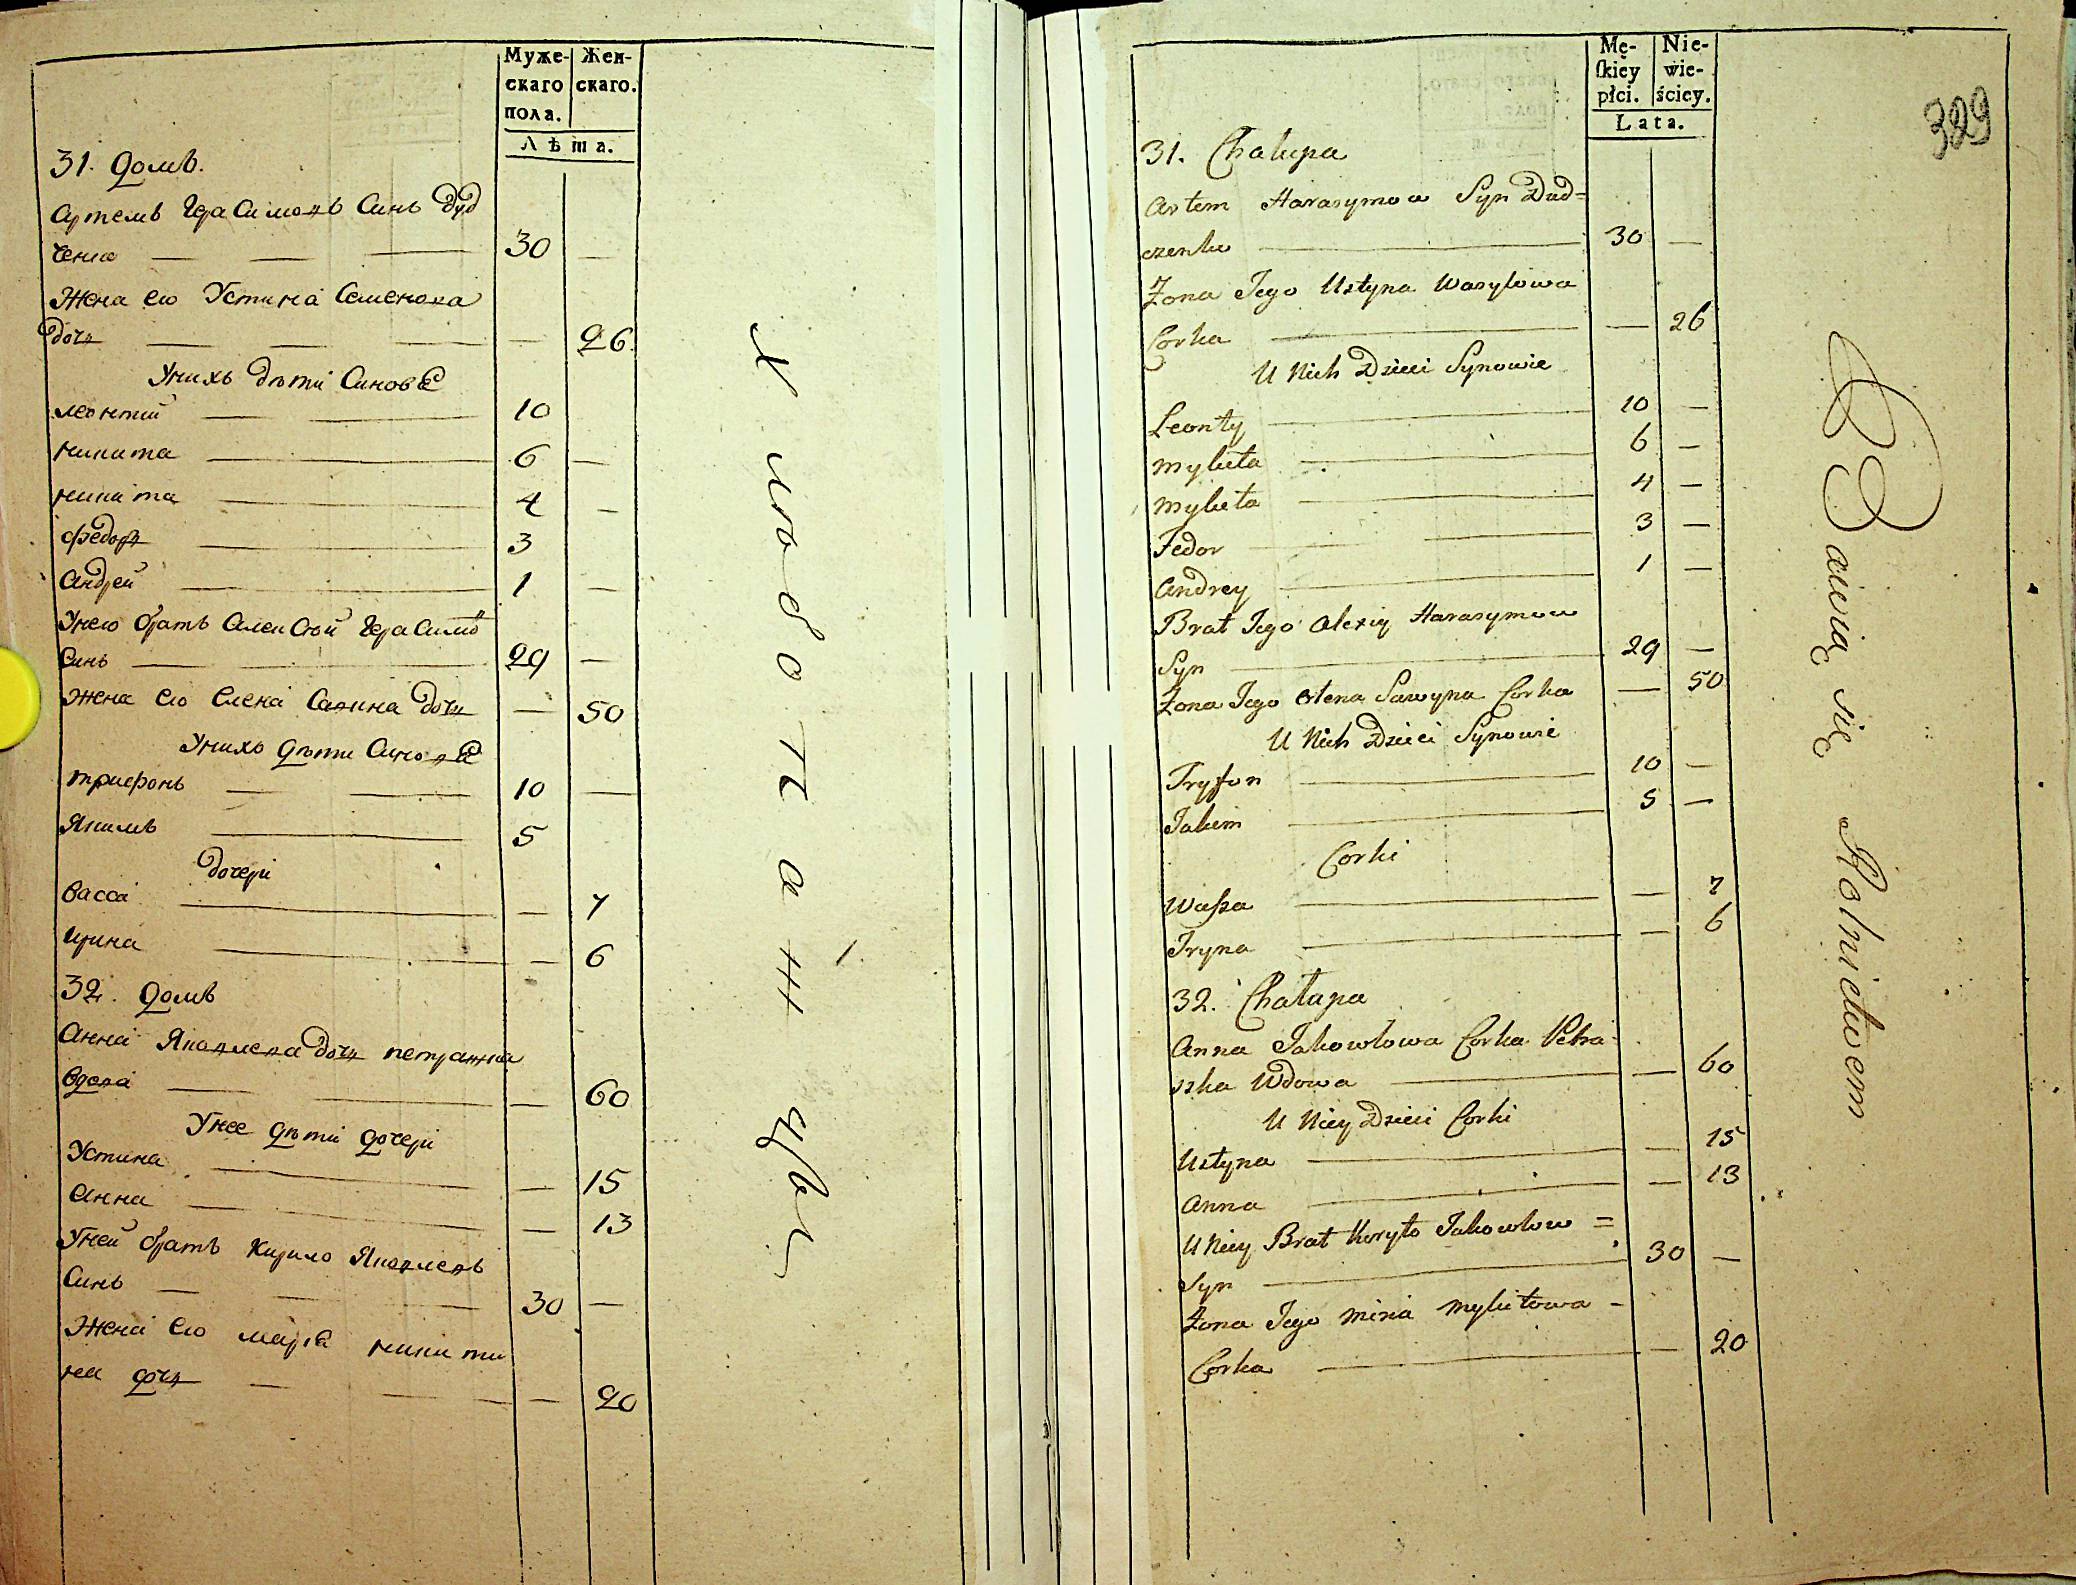 Муже-
скаго
пола.
Жен-
скаго.
Лѣта.
31. домъ.
Артемъ Герасимовъ Синъ Дуд
ченко — — — 30 —
Жена его Устина Семенова
дочь — — — — 26.
У нихъ дѣти Синове
Леонтий — — 10
Никита — 6 —
Никита — 4 —
Федоръ — 3
Андрей — 1 —
У него братъ Алексѣй Герасимо
Синъ — 29 —
Жена его Елена Савина дочь — 50
У нихъ дѣти Синове
Трифонъ — — 10 —
Якимъ — 5
дочери
Васса — — 7
Ирина — — 6
32. домъ
Анна Яковлева дочь петрашка
вдова — — — 60
У нее дѣти дочери
Устина — — 15
Анна — — 13
У ней братъ Кирило Яковлевъ
Синъ — — — 30 —
Жена его Марія Никити
на дочь — — — 20
Хлѣбопашцы
329
Mę-
skiey
płci.
Nie-
wie-
ściey.
Lata.
31. Chalupa
Artem Harasymow Syn Dud=
czenko — 30 —
Żona Jego Ustyna Wasylowa
Corka — — 26
U Nich Dzieci Synowie
Leonty — 10 —
Mykita — 6 —
Mykita — 4 —
Fedor — 3 —
Andrey — 1 —
Brat Jego Alexiy Harasymow
Syn — 29 —
Żona Jego Olena Sawyna Corka — 50
U Nich Dzieci Synowie
Tryfon — 10 —
Jakim — 5 —
Corki
Wassa — — 7
Iryna — — 6
32. Chałupa
Anna Jakowlowa Corka Petra-
szka Wdowa — — 60
U Niey Dzieci Corki
Ustyna — — 15
Anna — — 13
U Niey Brat Kiryło Jakowlow =
Syn — 30 —
Żona Jego Mykitowa -
Corka — — 20
Bawią się Rolnictwem